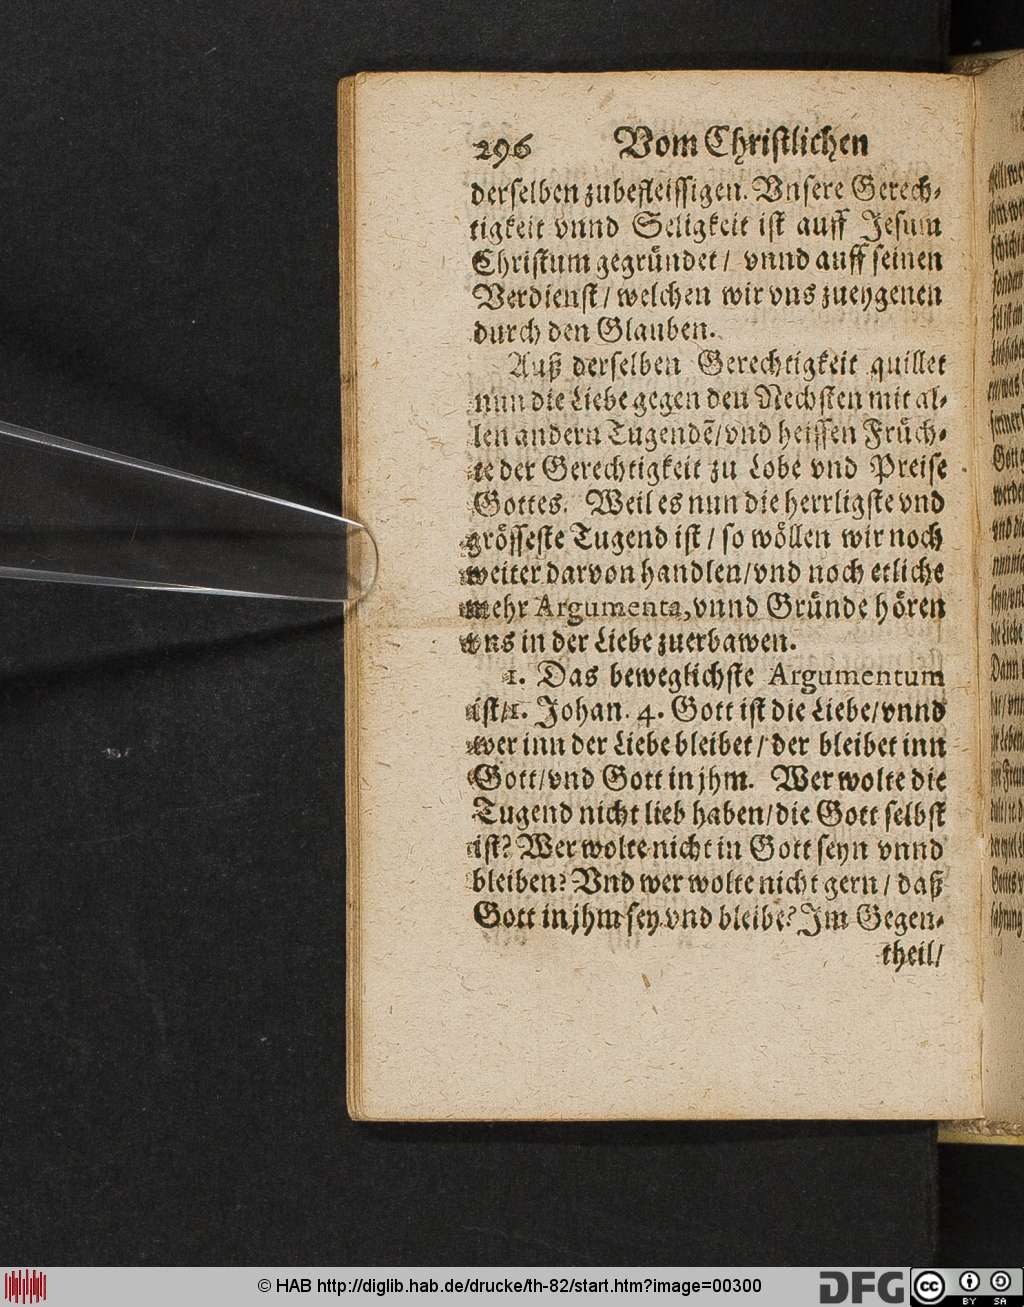 296 Vom Christlichen
derselben zubefleissigen. Vnsere Gerech-
tigkeit vnnd Seligkeit ist auff Jesum
Christum gegründet / vnnd auff seinen
Verdienst / welchen wir vns zueygenen
durch den Glauben.
Auß derselben Gerechtigkeit quillet
nun die Liebe gegen den Nechsten mit al-
len andern Tugendẽ / vnd heissen Früch-
te der Gerechtigkeit zu Lobe vnd Preise
Gottes. Weil es nun die herrligste vnd
grösseste Tugend ist / so wöllen wir noch
weiter darvon handlen / vnd noch etliche
mehr Argumenta, vnnd Gründe hören
vns in der Liebe zuerbawen.
1. Das beweglichste Argumentum
ist / 1. Johan. 4. Gott ist die Liebe / vnnd
wer inn der Liebe bleibet / der bleibet inn
Gott / vnd Gott in jhm. Wer wolte die
Tugend nicht lieb haben / die Gott selbst
ist? Wer wolte nicht in Gott seyn vnnd
bleiben? Vnd wer wolte nicht gern / daß
Gott in jhm sey vnd bleibe? Im Gegen-
theil /
© HAB http://diglib.hab.de/drucke/th-82/start.htm?image=00300
DFG
cc BY SA